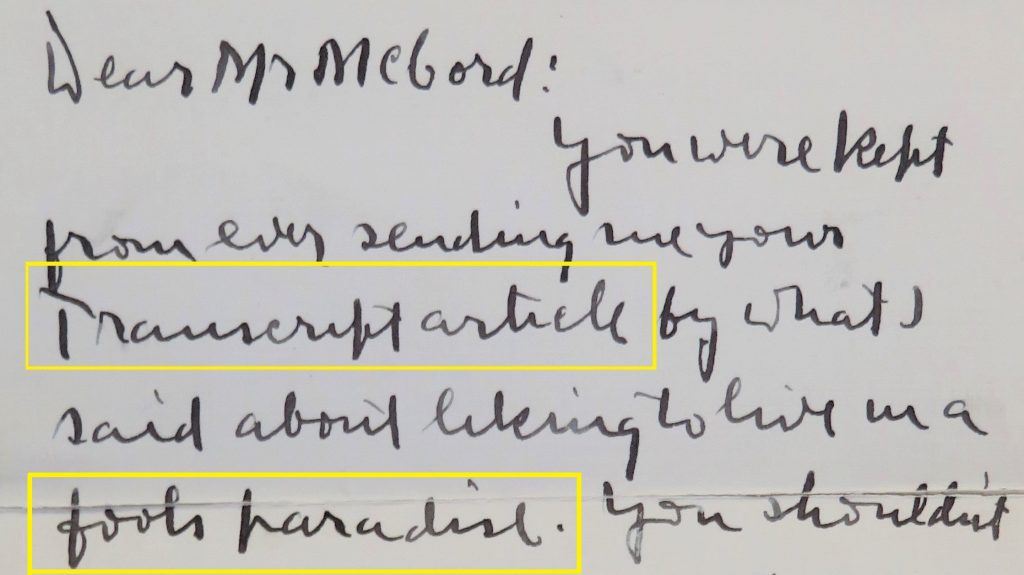 Dear Mr McCord:
You were kept
from ever sending me your
Transcript article by what I
said about liking to live in a
fools paradise. You shouldn't